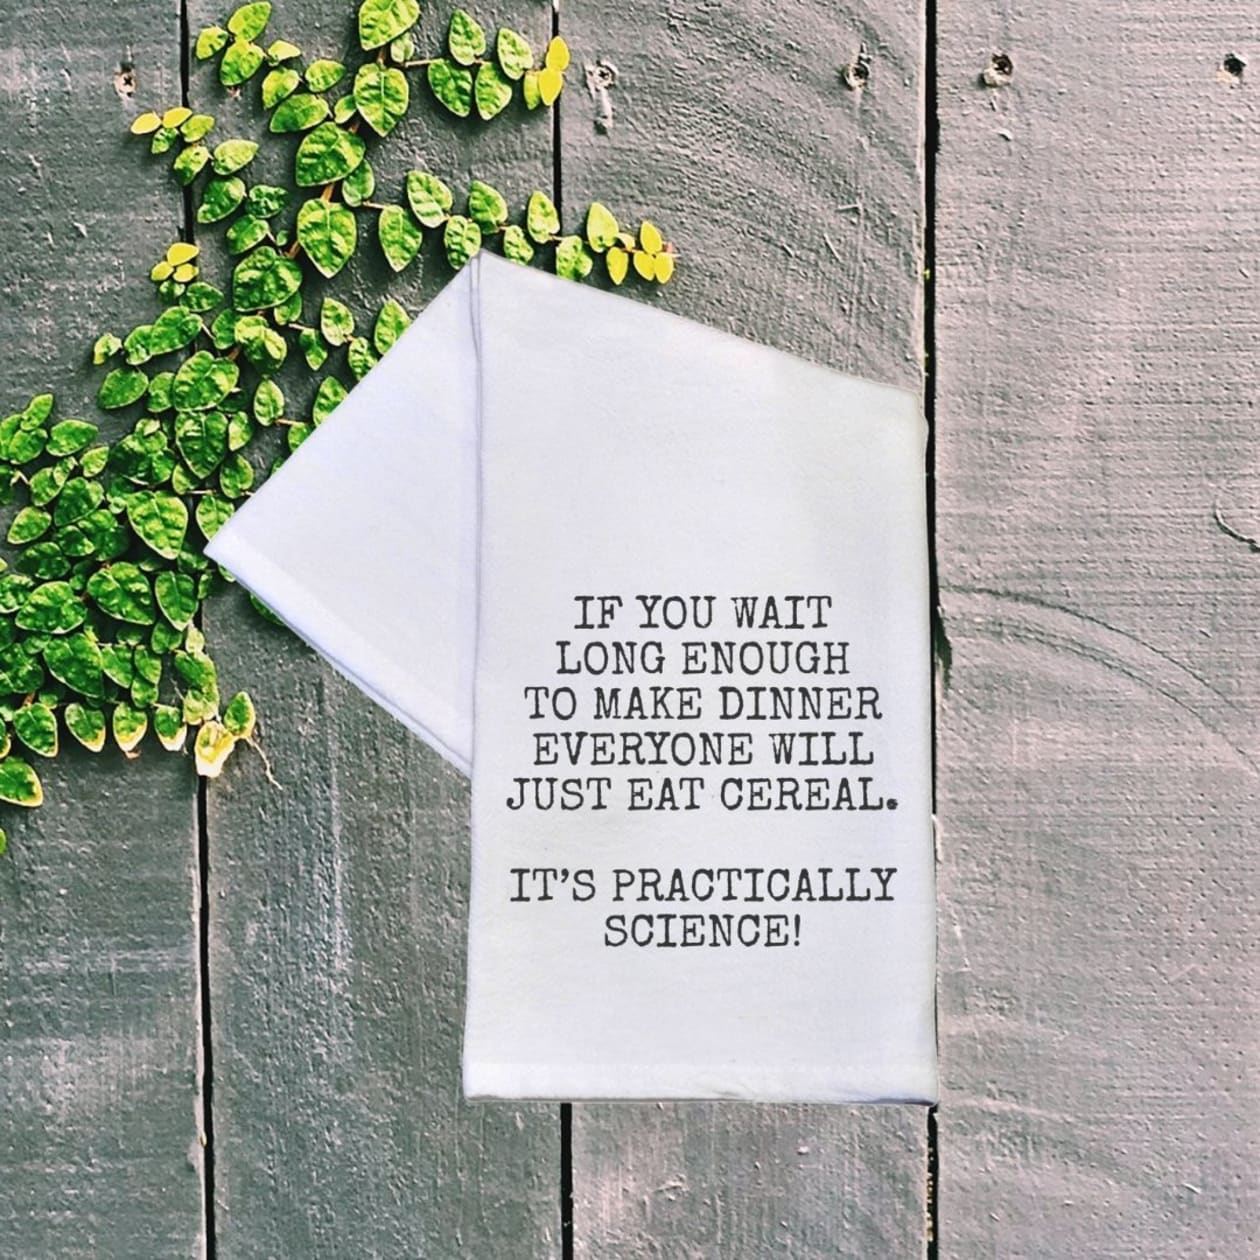 IF YOU WAIT
LONG ENOUGH
TO MAKE DINNER
EVERYONE WILL
JUST EAT CEREAL.
IT'S PRACTICALLY
SCIENCE!